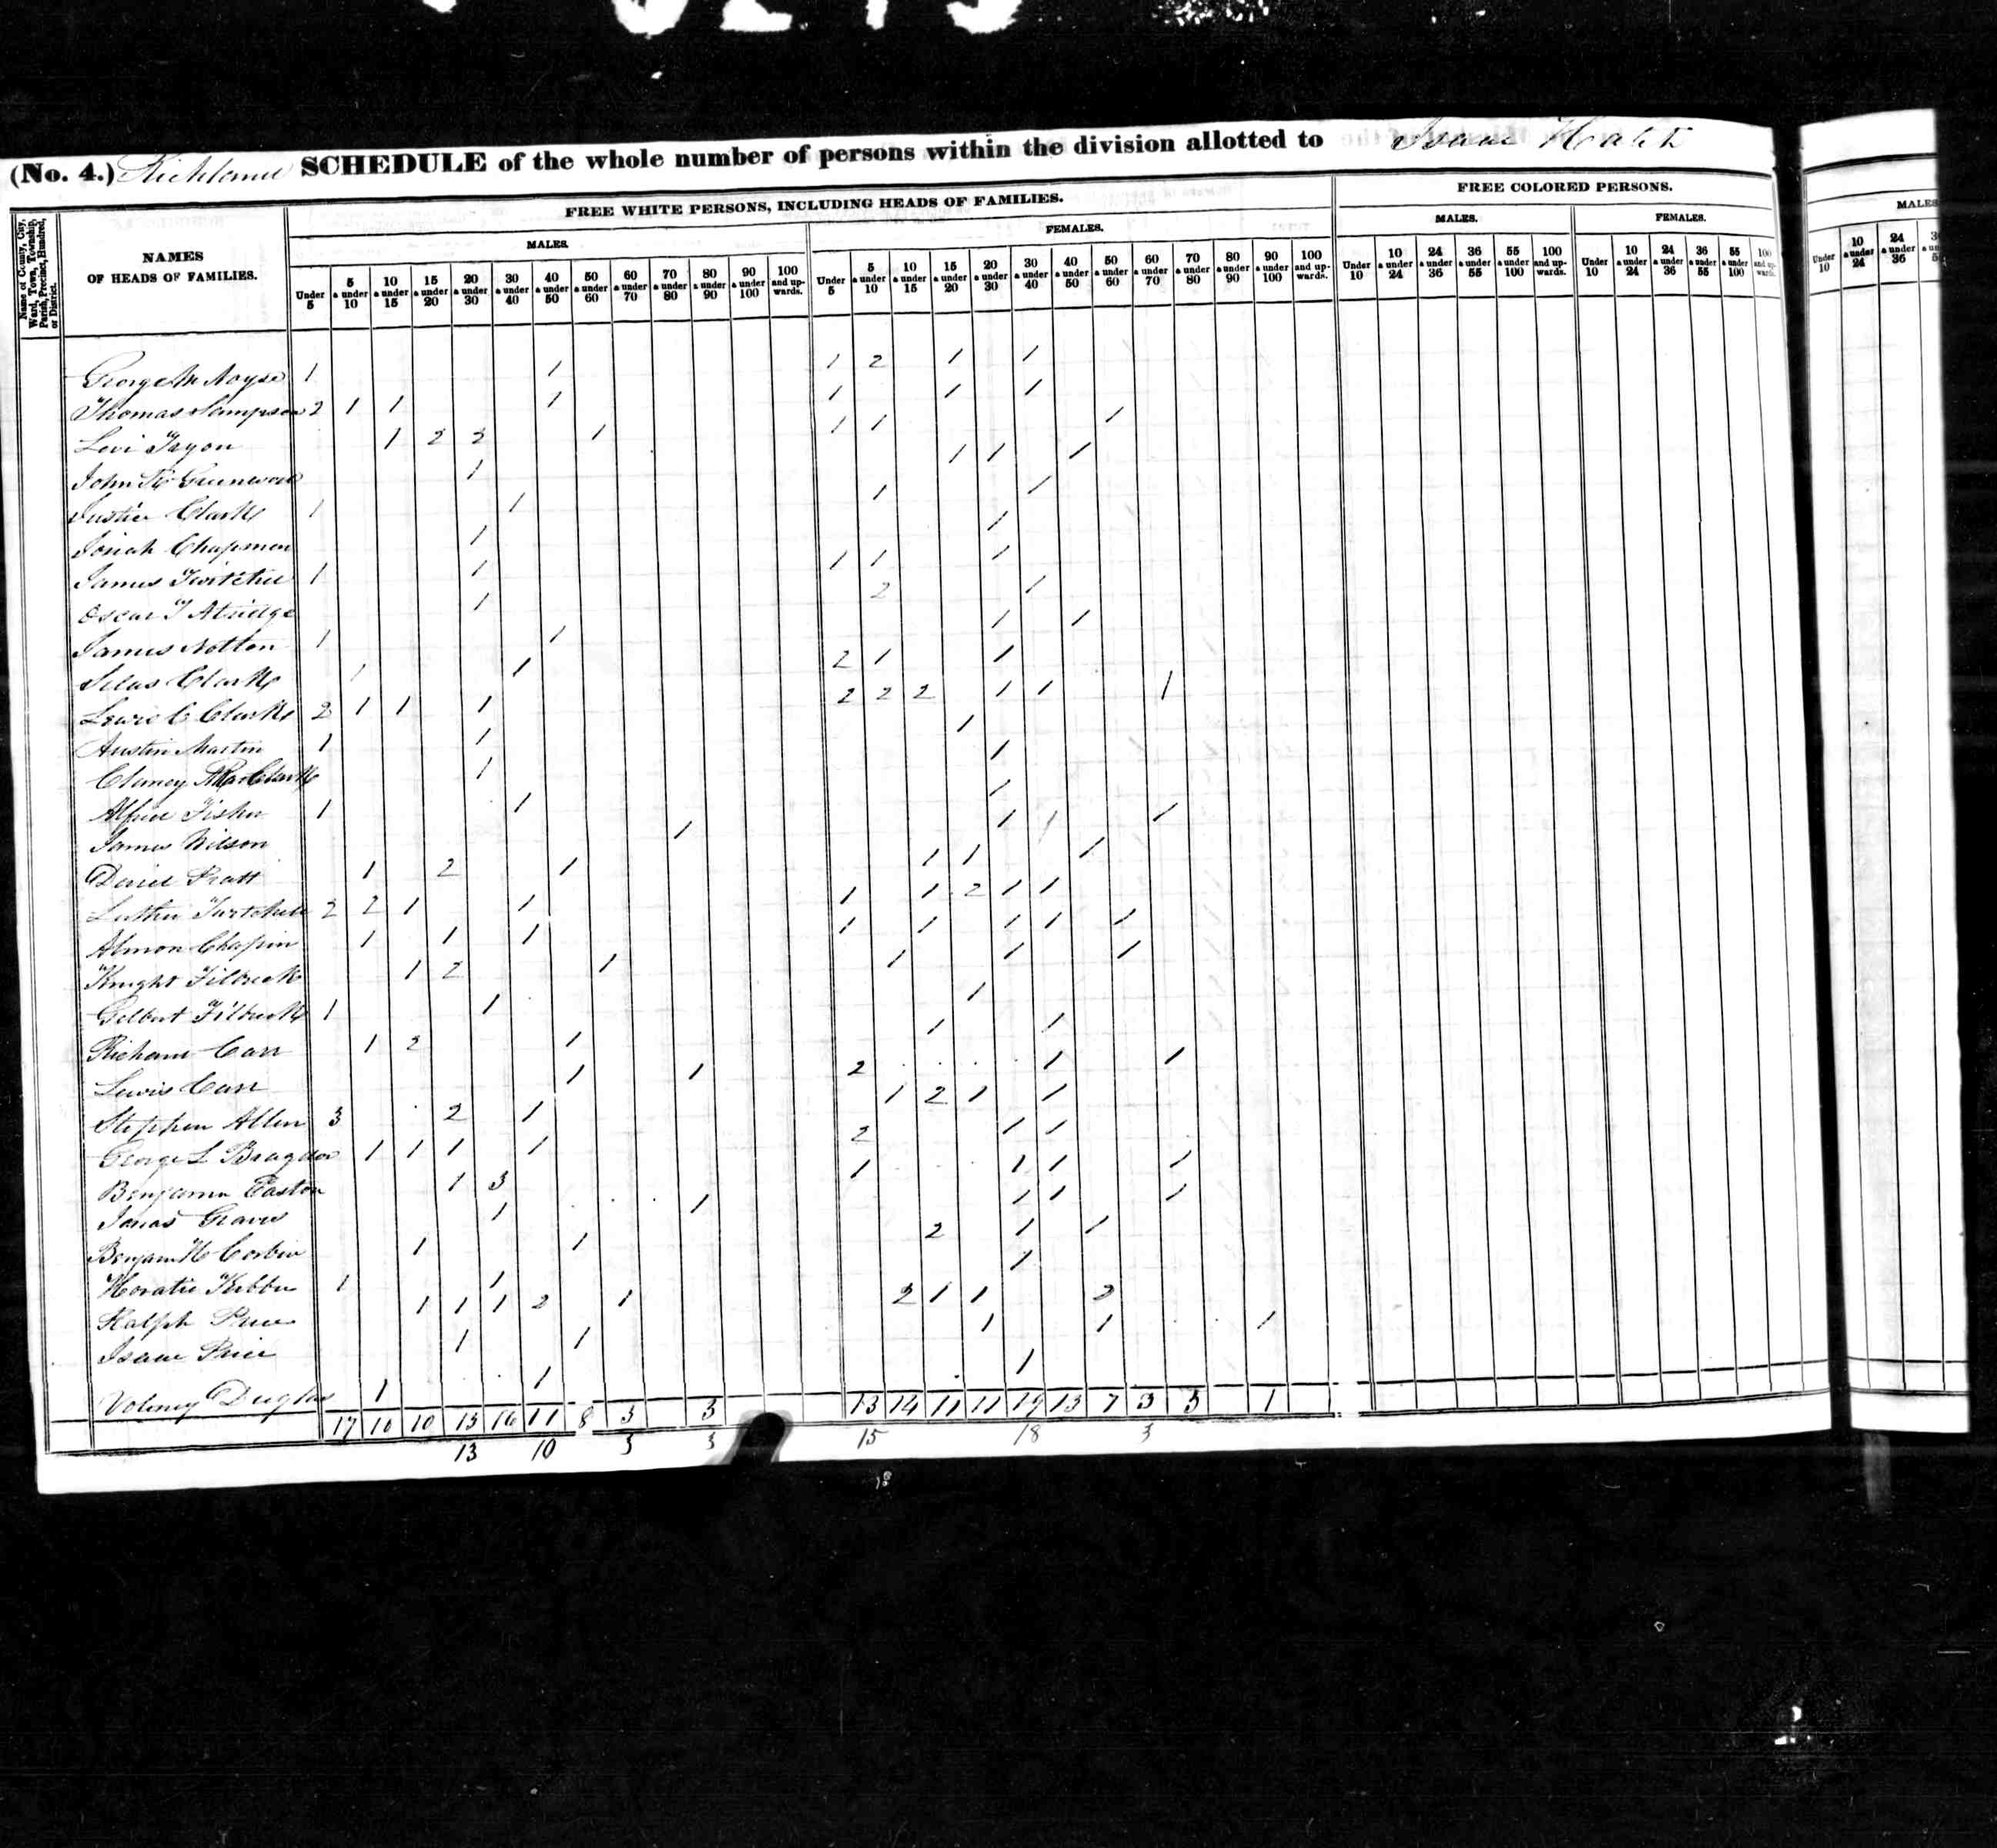 (No. 4.) Richland SCHEDULE of the whole number of persons within the division allotted to Isaac
Name of County, City, Ward, Town, Township, Parish, Precinct, Hundred, or District.
NAMES OF HEADS OF FAMILIES.
FREE WHITE PERSONS, INCLUDING HEADS OF FAMILIES.
FREE COLORED PERSONS.
MALES. FEMALES. MALES. FEMALES. MALES
Under 5 5 & under 10 10 & under 15 15 & under 20 20 & under 30 30 & under 40 40 & under 50 50 & under 60 60 & under 70 70 & under 80 80 & under 90 90 & under 100 100 and upwards. Under 5 5 & under 10 10 & under 15 15 & under 20 20 & under 30 30 & under 40 40 & under 50 50 & under 60 60 & under 70 70 & under 80 80 & under 90 90 & under 100 100 and upwards. Under 10 10 & under 24 24 & under 36 36 & under 55 55 & under 100 100 and upwards. Under 10 10 & under 24 24 & under 36 36 & under 55 55 & under 100 100 and upwards. Under 10 10 & under 24 24 & under 36
George M Noyse 1 1 1 2 1 1
Thomas Sampson 2 1 1 1 1 1 1
Levi Tryon 1 2 1 1 1 1
John Greenwood 1 1 1 1
Justin Clark 1 1 1 1
Josiah Chapman 1 1
James Twitchel 1 1 1 1 1
Oscar T 1 2 1
James Notton 1 1 1 1
Silas Clark 1 1 2 1 1
Lewis C Clark 2 1 1 1 2 2 2 1 1 1
Austin Martin 1 1 1
Clark 1 1
Fisher 1 1 1
James Wilson 1 1 1 1
Pratt 1 2 1 1 1 1
Luther Twitchell 2 2 1 1 1 1 2 1 1
Almon Chapin 1 1 1 1 1 1 1 1
Knight 1 2 1 1 1 1
Gilbert 1 1 1
Carr 1 2 1 1 1
Lewis Carr 1 1 2 1 1
Stephen Allen 3 2 1 1 2 1 1
George L Bragdon 1 1 1 1 2 1 1
Benjamin Easton 1 3 1 1 1 1
Jonas Graves 1 1 1 1 1
Corbin 1 1 2 1 1
Horatio 1 1 1
Ralph Price 1 1 1 2 1 2 1 1 2
Isaac Price 1 1 1 1 1
Volney Duglas 1 1 1
17 10 10 13 16 11 8 3 3 13 14 11 11 19 13 7 3 3 1
13 10 3 3 15 18 3
18